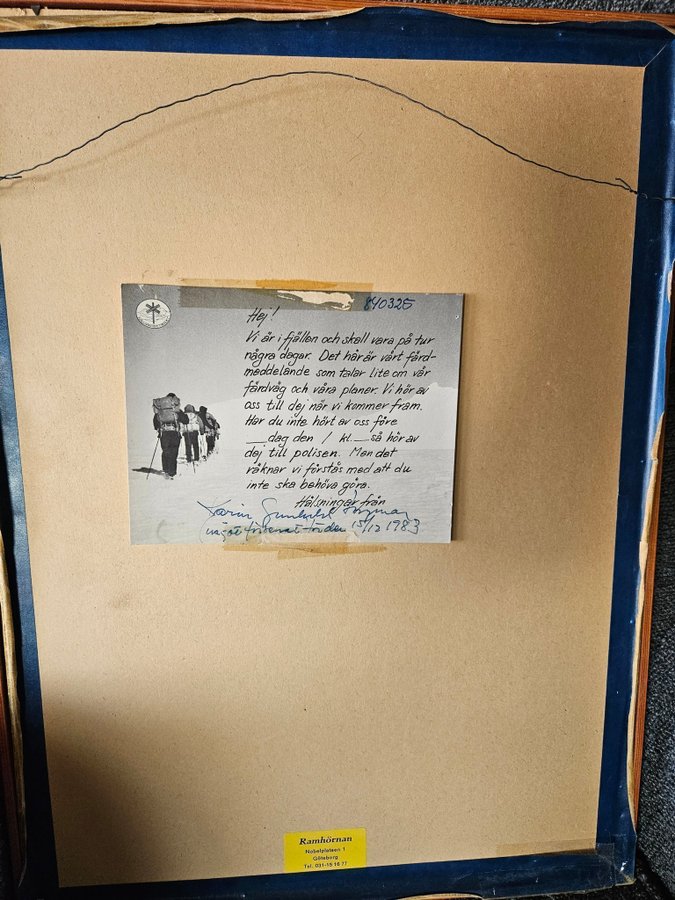 840325
Hej!
Vi är i fjällen och skall vara på tur
några dagar. Det här är vårt färd-
meddelande som talar lite om vår
färdväg och våra planer. Vi hör av
oss till dej når vi kommer fram.
Har du inte hört av oss före
__dag den / kl.__så hör av
dej till polisen. Men det
räknar vi förstås med att du
inte ska behöva göra.
Hälsningar från
Karin Gunhild
15/12 1983
Ramhörnan
Nobelplatsen 1
Göteborg
Tel. 031-15 16 77